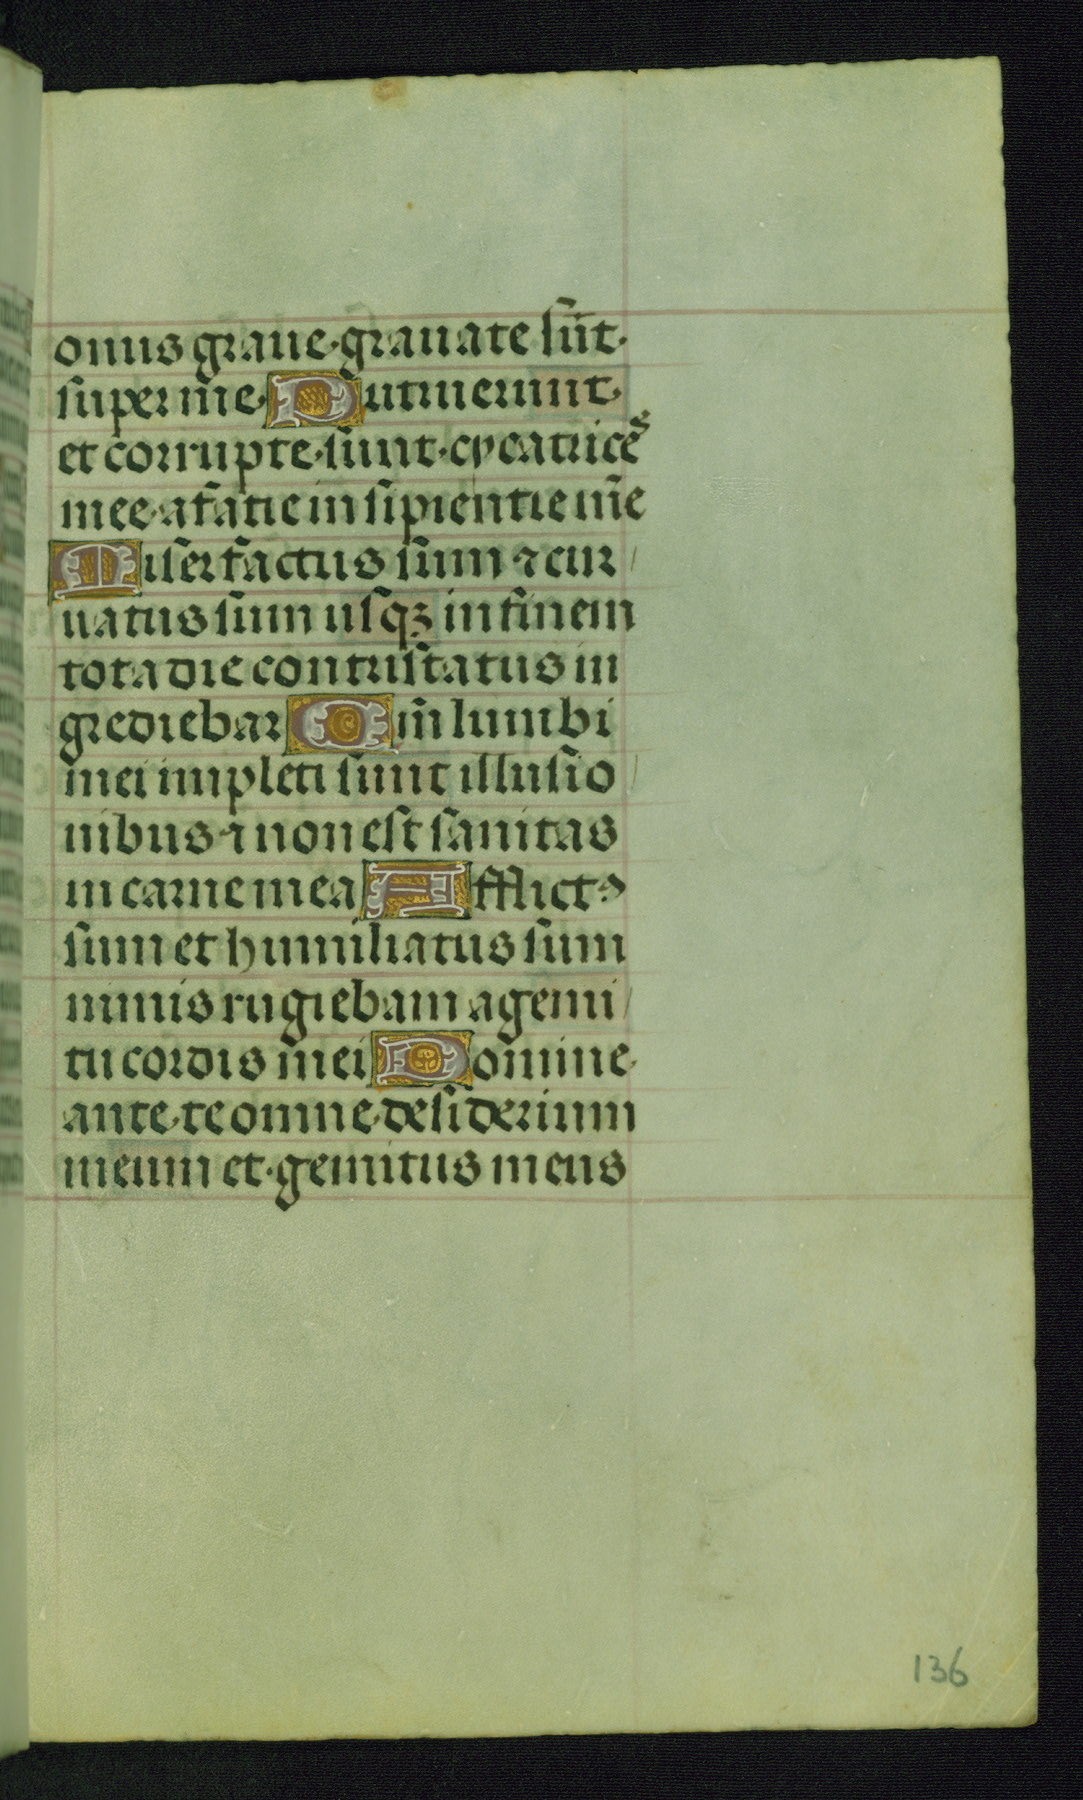 onus graue·grauate su̅t·
super me·Putruerunt·
et corrupte·sunt·cycatrices
mee·a fatie insipientie me
Miser factus sum ⁊ cur
uatus sum usqꝫ in finem
tota die contristatus in
grediebar Qm̅ lumbi
mei impleti sunt illusio
nibus·⁊ non est sanitas
in carne mea Afflictꝰ
sum et humiliatus sum
nimis rugiebam a gemi
tu cordis mei Domine·
ante·te omne·desiderium
meum et·gemitus meus
136